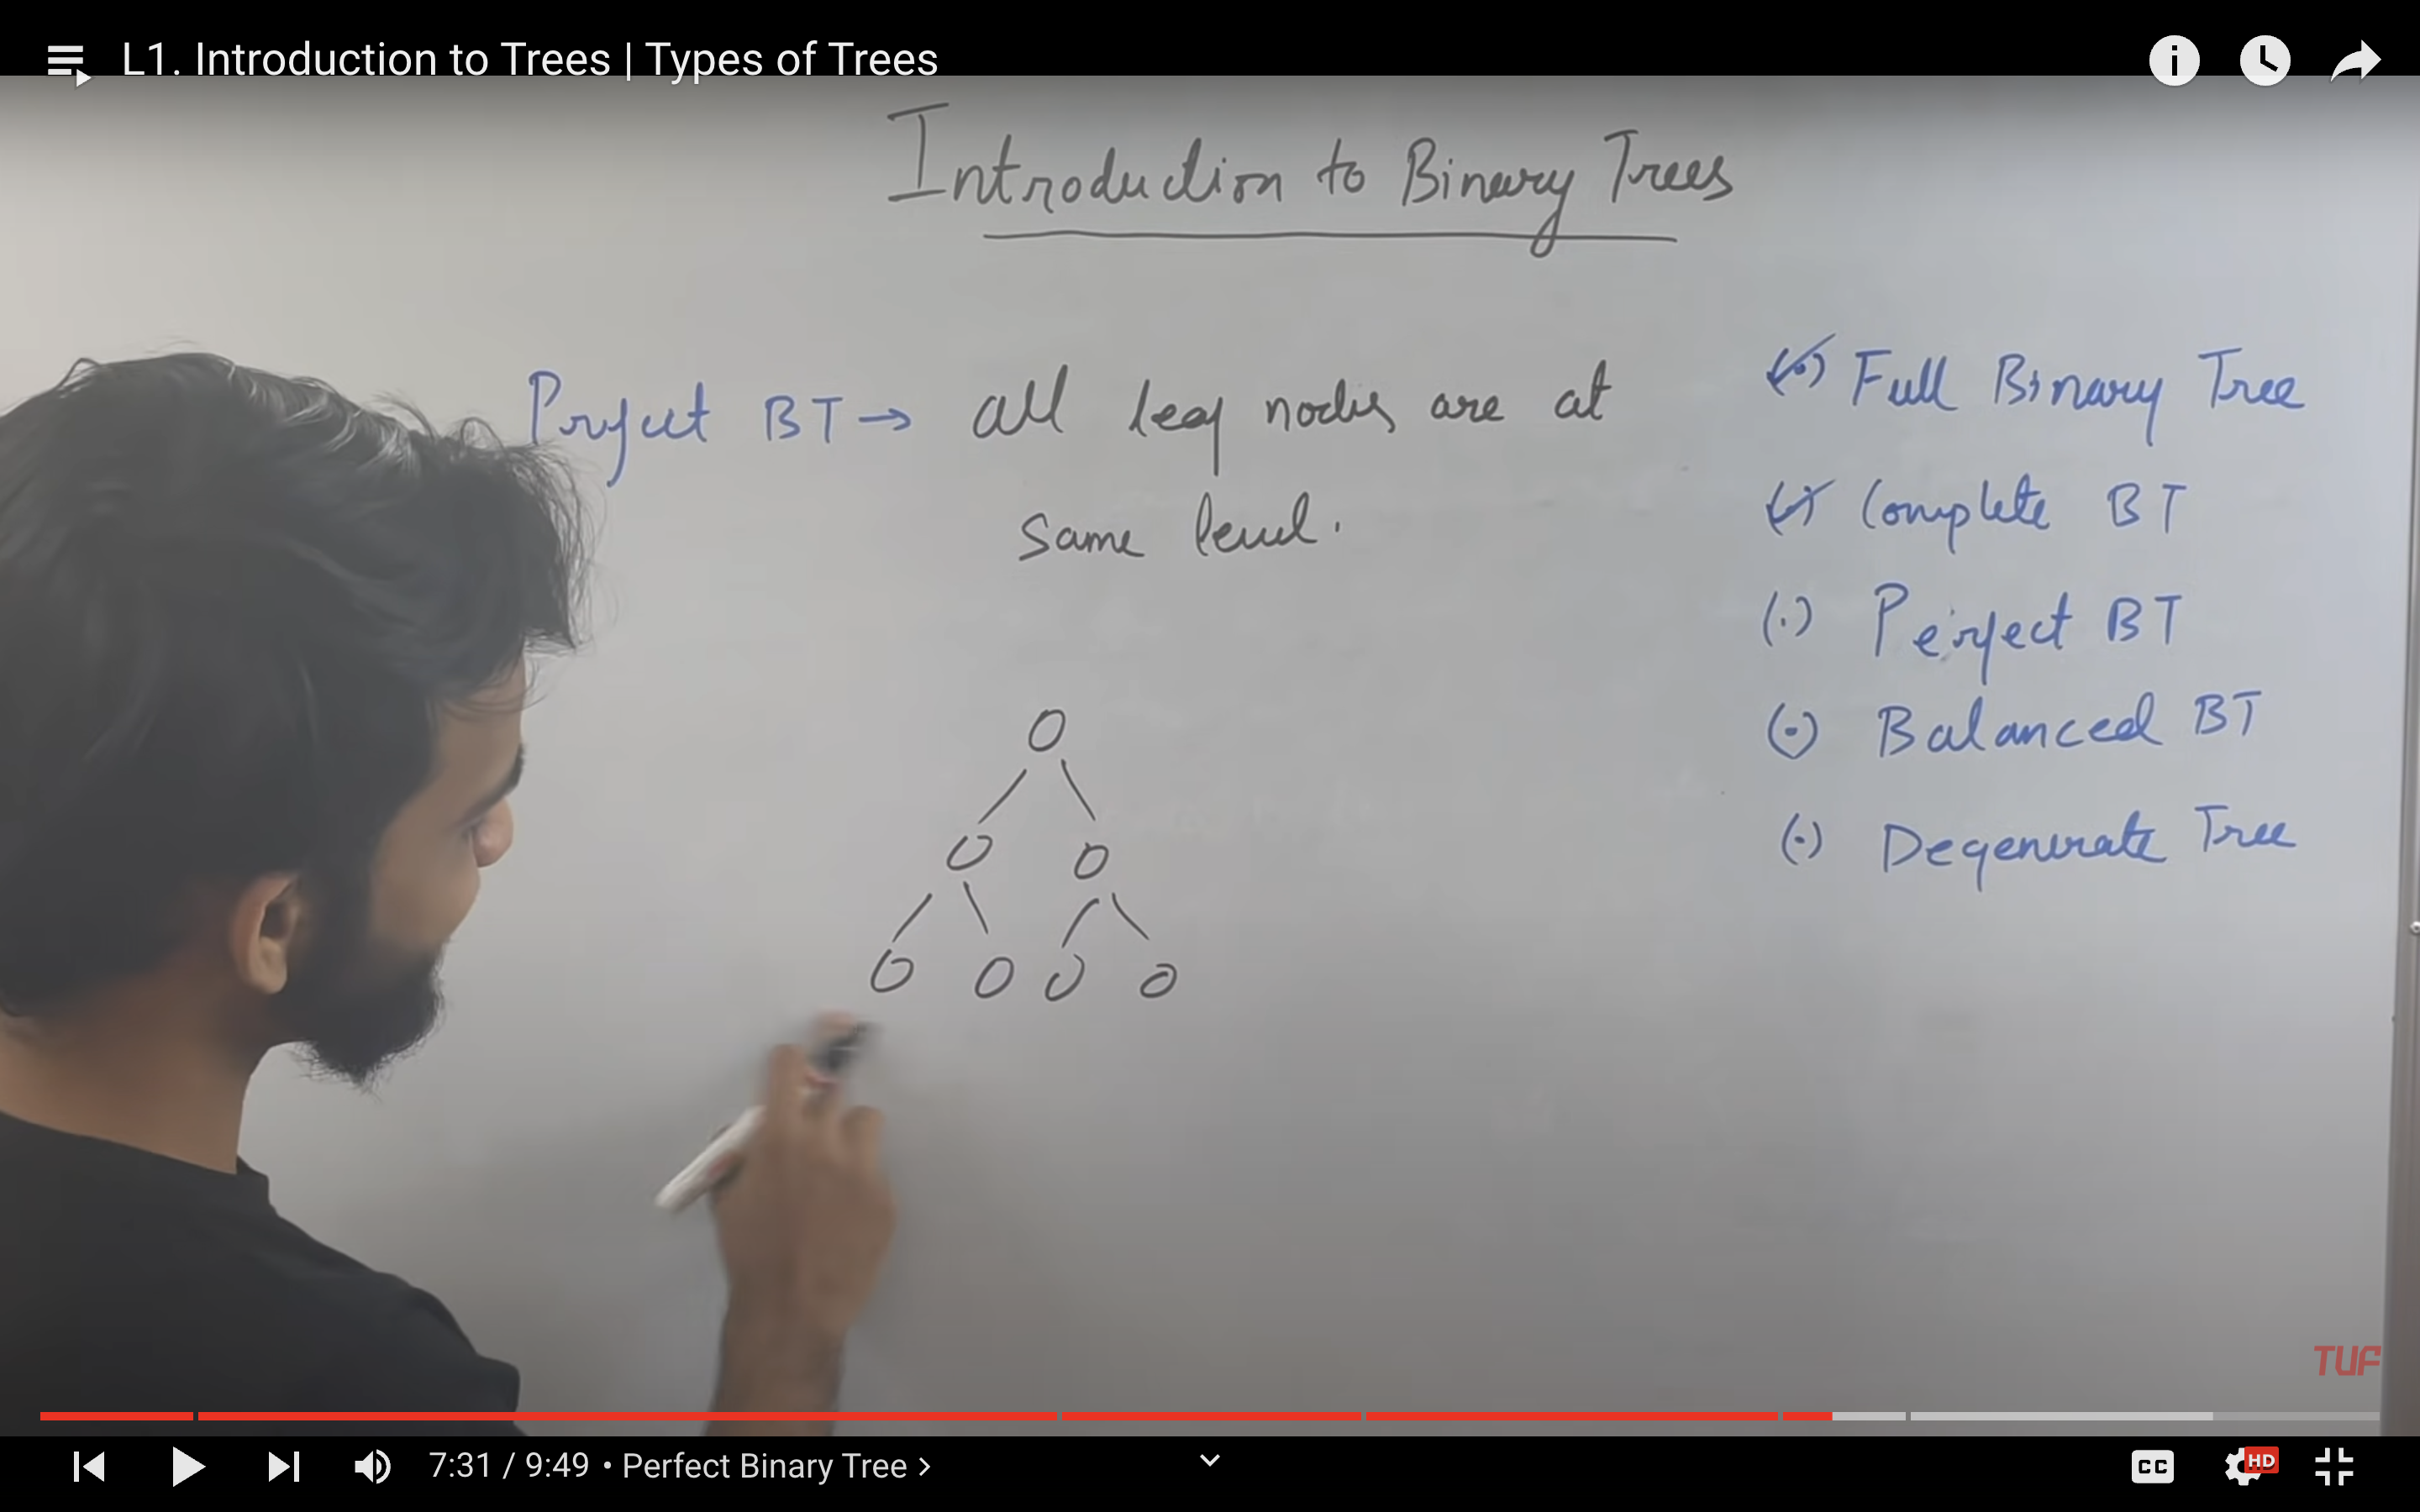 L1. Introduction to Trees | Types of Trees
Introduction to Binary Trees
Perfect BT → all leaf nodes are at
same level.
(•) Full Binary Tree
(•) Complete BT
(•) Perfect BT
(•) Balanced BT
(•) Degenerate Tree
TUF
7:31 / 9:49 • Perfect Binary Tree >
CC
HD